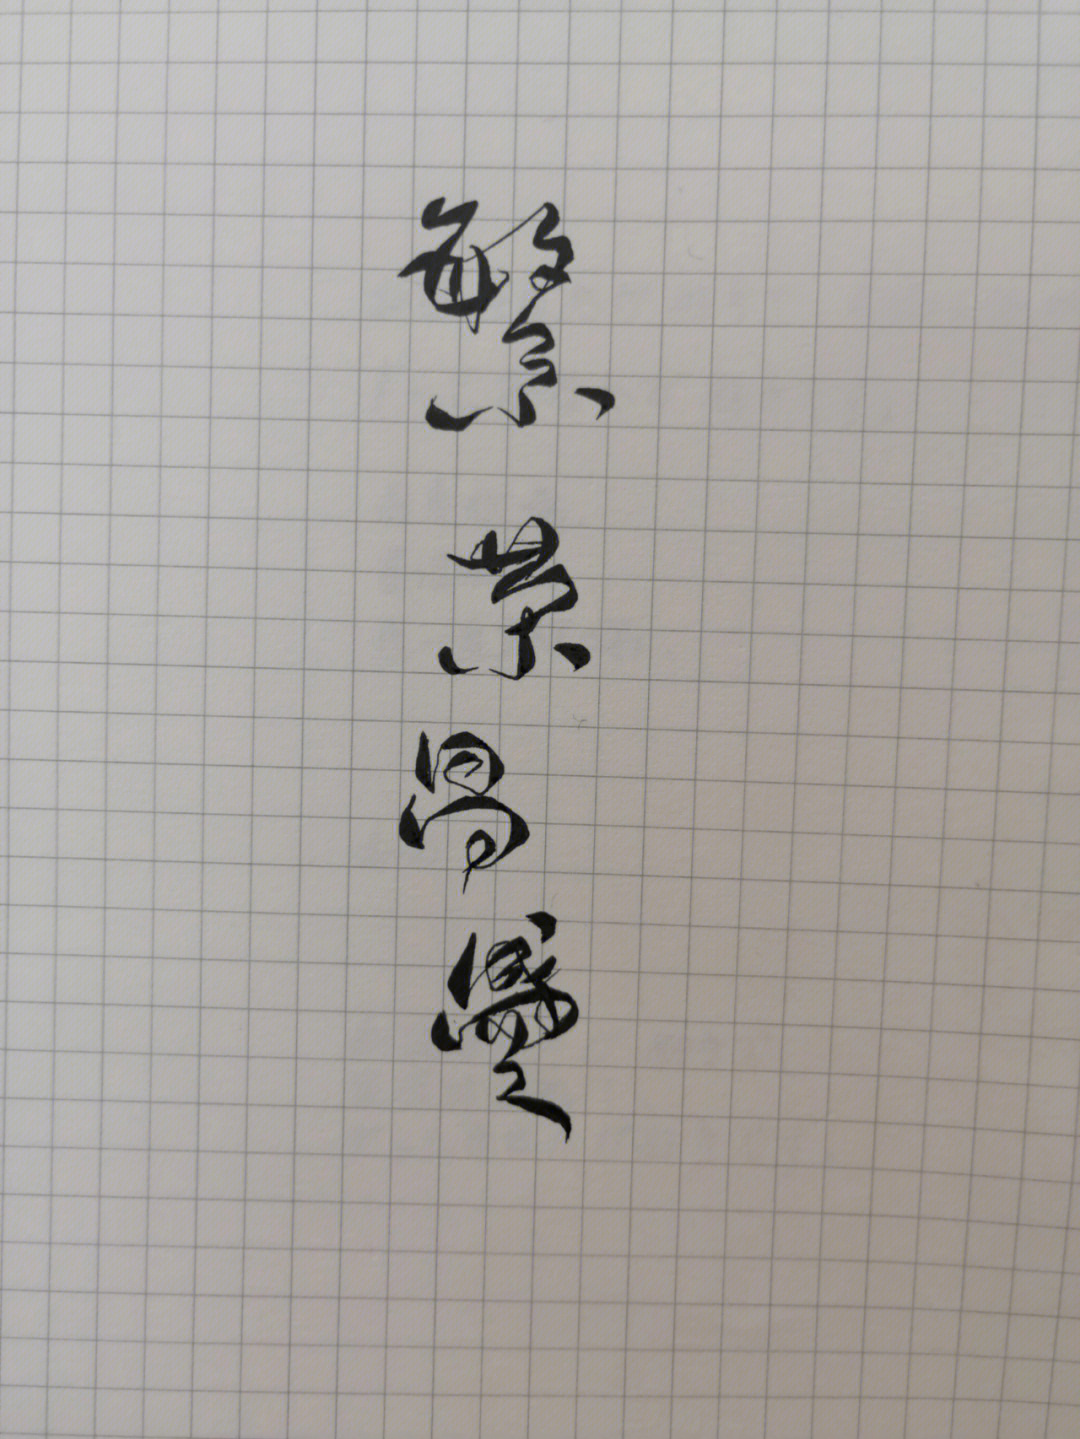 繁荣昌盛